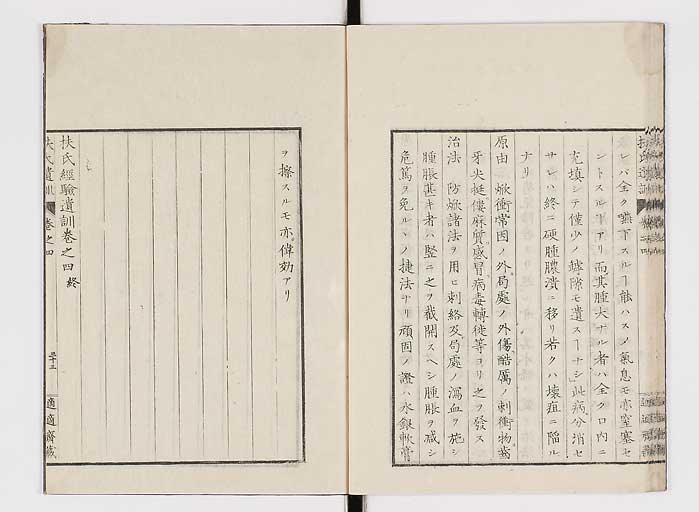 レバ全ク嚥下スルヿ能ハス氣息モ亦窒塞セ
ントスルヿアリ而其腫大ナル者ハ全ク口内ニ
充填シテ僅少ノ罅隙モ遺スヿナシ此病分消セ
サレハ終ニ硬腫膿潰ニ移リ若クハ壊疽ニ陥ル
ナリ
原由 焮衝常因ノ外局處ノ外傷酷厲ノ刺衝物
牙尖挺僂麻質感冒病毒轉徙等ヨリ之ヲ發ス
治法 防焮諸法ヲ用ヒ刺絡及局處ノ瀉血ヲ施シ
腫脹甚キ者ハ竪ニ之ヲ截開スヘシ腫脹ヲ減シ
危篤ヲ免ルヽノ捷法ナリ頑固ノ證ハ水銀軟膏
ヲ擦スルモ亦偉効アリ
扶氏經驗遺訓巻之四終
扶氏遺訓 巻之四 三十三 適適齋藏